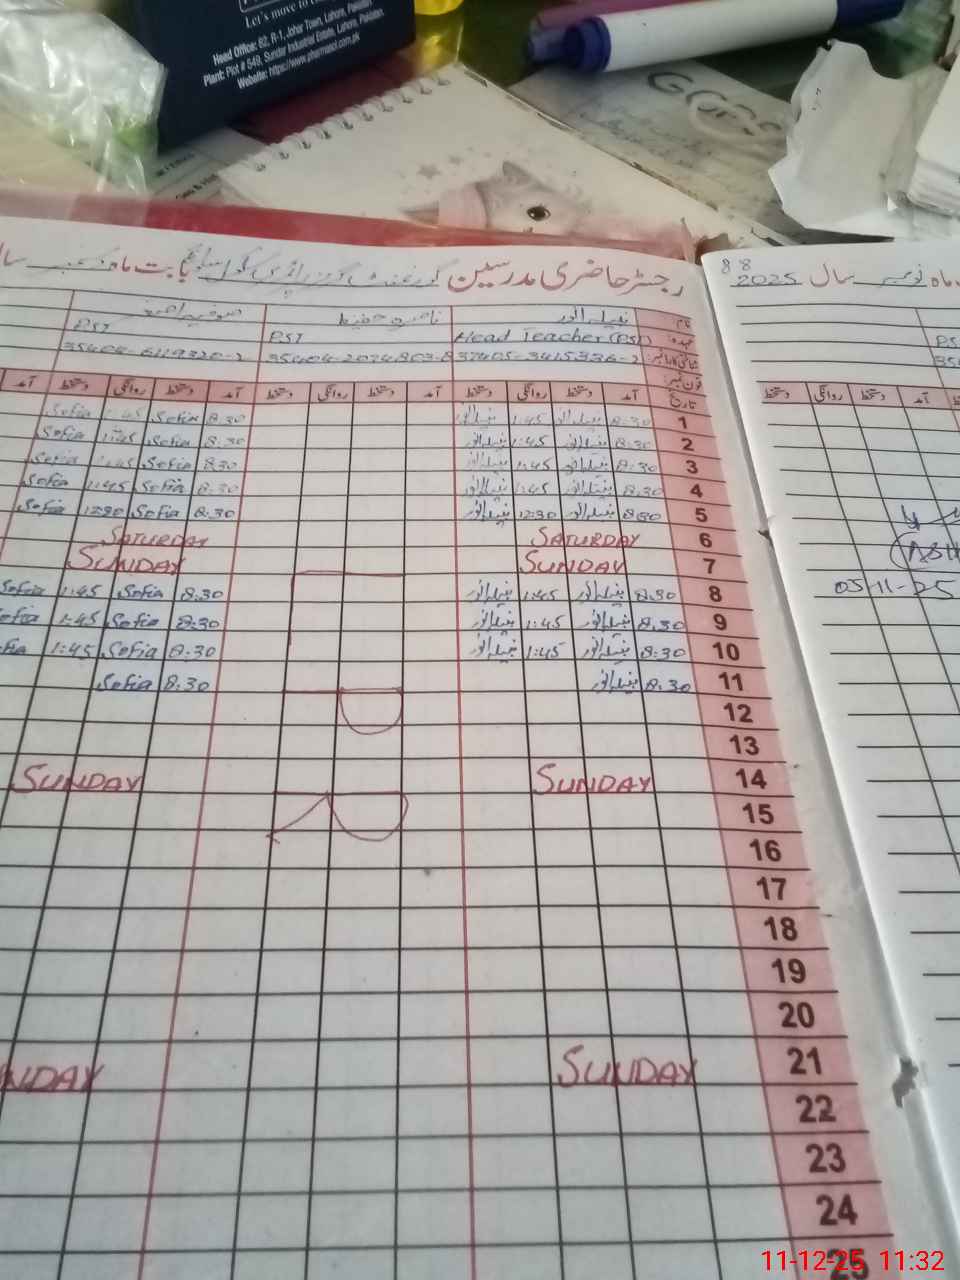 Let's move to
Head Office: 62, R-1, Johar Town, Lahore, Pakistan.
Plant: Plot # 549, Sundar Industrial Estate, Lahore, Pakistan.
Website: https://www.pharmasol.com.pk
رجسٹر حاضری مدرسین گورنمنٹ گرلز پرائمری سکول بابت ماہ دسمبر سال
88
ماہ نومبر سال 2025
نام نبیلہ انور ناصرہ حفیظ صوفیہ
عہدہ Head Teacher (PST) PST PST
شناختی کارڈ نمبر
فون نمبر
تاریخ آمد دستخط روانگی دستخط آمد دستخط روانگی دستخط آمد دستخط روانگی دستخط آمد
آمد دستخط روانگی دستخط
1 8:30 نبیلہ انور 1:45 نبیلہ انور 8:30 Sofia 1:45 Sofia
2 8:30 نبیلہ انور 1:45 نبیلہ انور 8:30 Sofia 1:45 Sofia
3 8:30 نبیلہ انور 1:45 نبیلہ انور 8:30 Sofia 1:45 Sofia
4 8:30 نبیلہ انور 1:45 نبیلہ انور 8:30 Sofia 1:45 Sofia
5 8:30 نبیلہ انور 12:30 نبیلہ انور 8:30 Sofia 12:30 Sofia
6 SATURDAY SATURDAY
7 SUNDAY SUNDAY
8 8:30 نبیلہ انور 1:45 نبیلہ انور 8:30 Sofia 1:45 Sofia
9 8:30 نبیلہ انور 1:45 نبیلہ انور 8:30 Sofia 1:45 Sofia
10 8:30 نبیلہ انور 1:45 نبیلہ انور 8:30 Sofia 1:45 Sofia
11 8:30 نبیلہ انور 8:30 Sofia
12
13
14 SUNDAY SUNDAY
15
16
17
18
19
20
21 SUNDAY NDAY
22
23
24
25
05-11-25
11-12-25 11:32